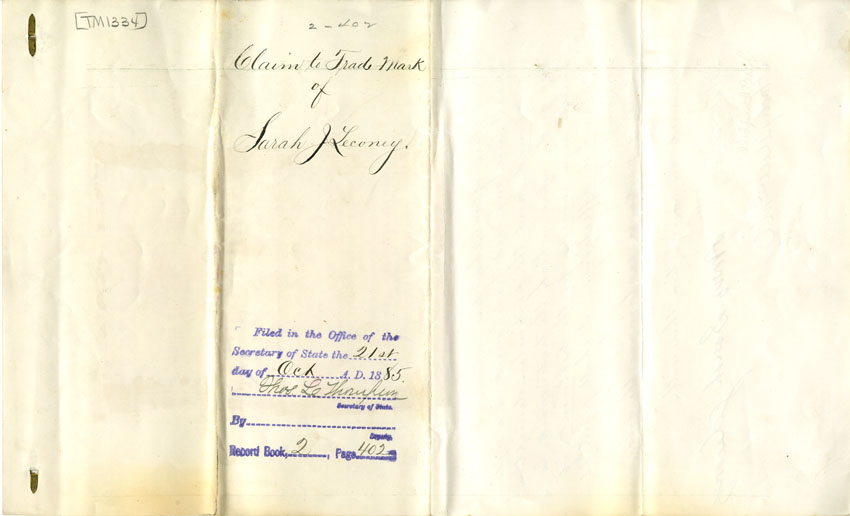 [TM1334]
2-402
Claim to Trade Mark
of
Sarah J Leconey.
Filed in the Office of the
Secretary of State the 21st
day of Oct A. D. 1885.
Thos L Thompson
Secretary of State.
By
Deputy.
Record Book, 2, Page 402